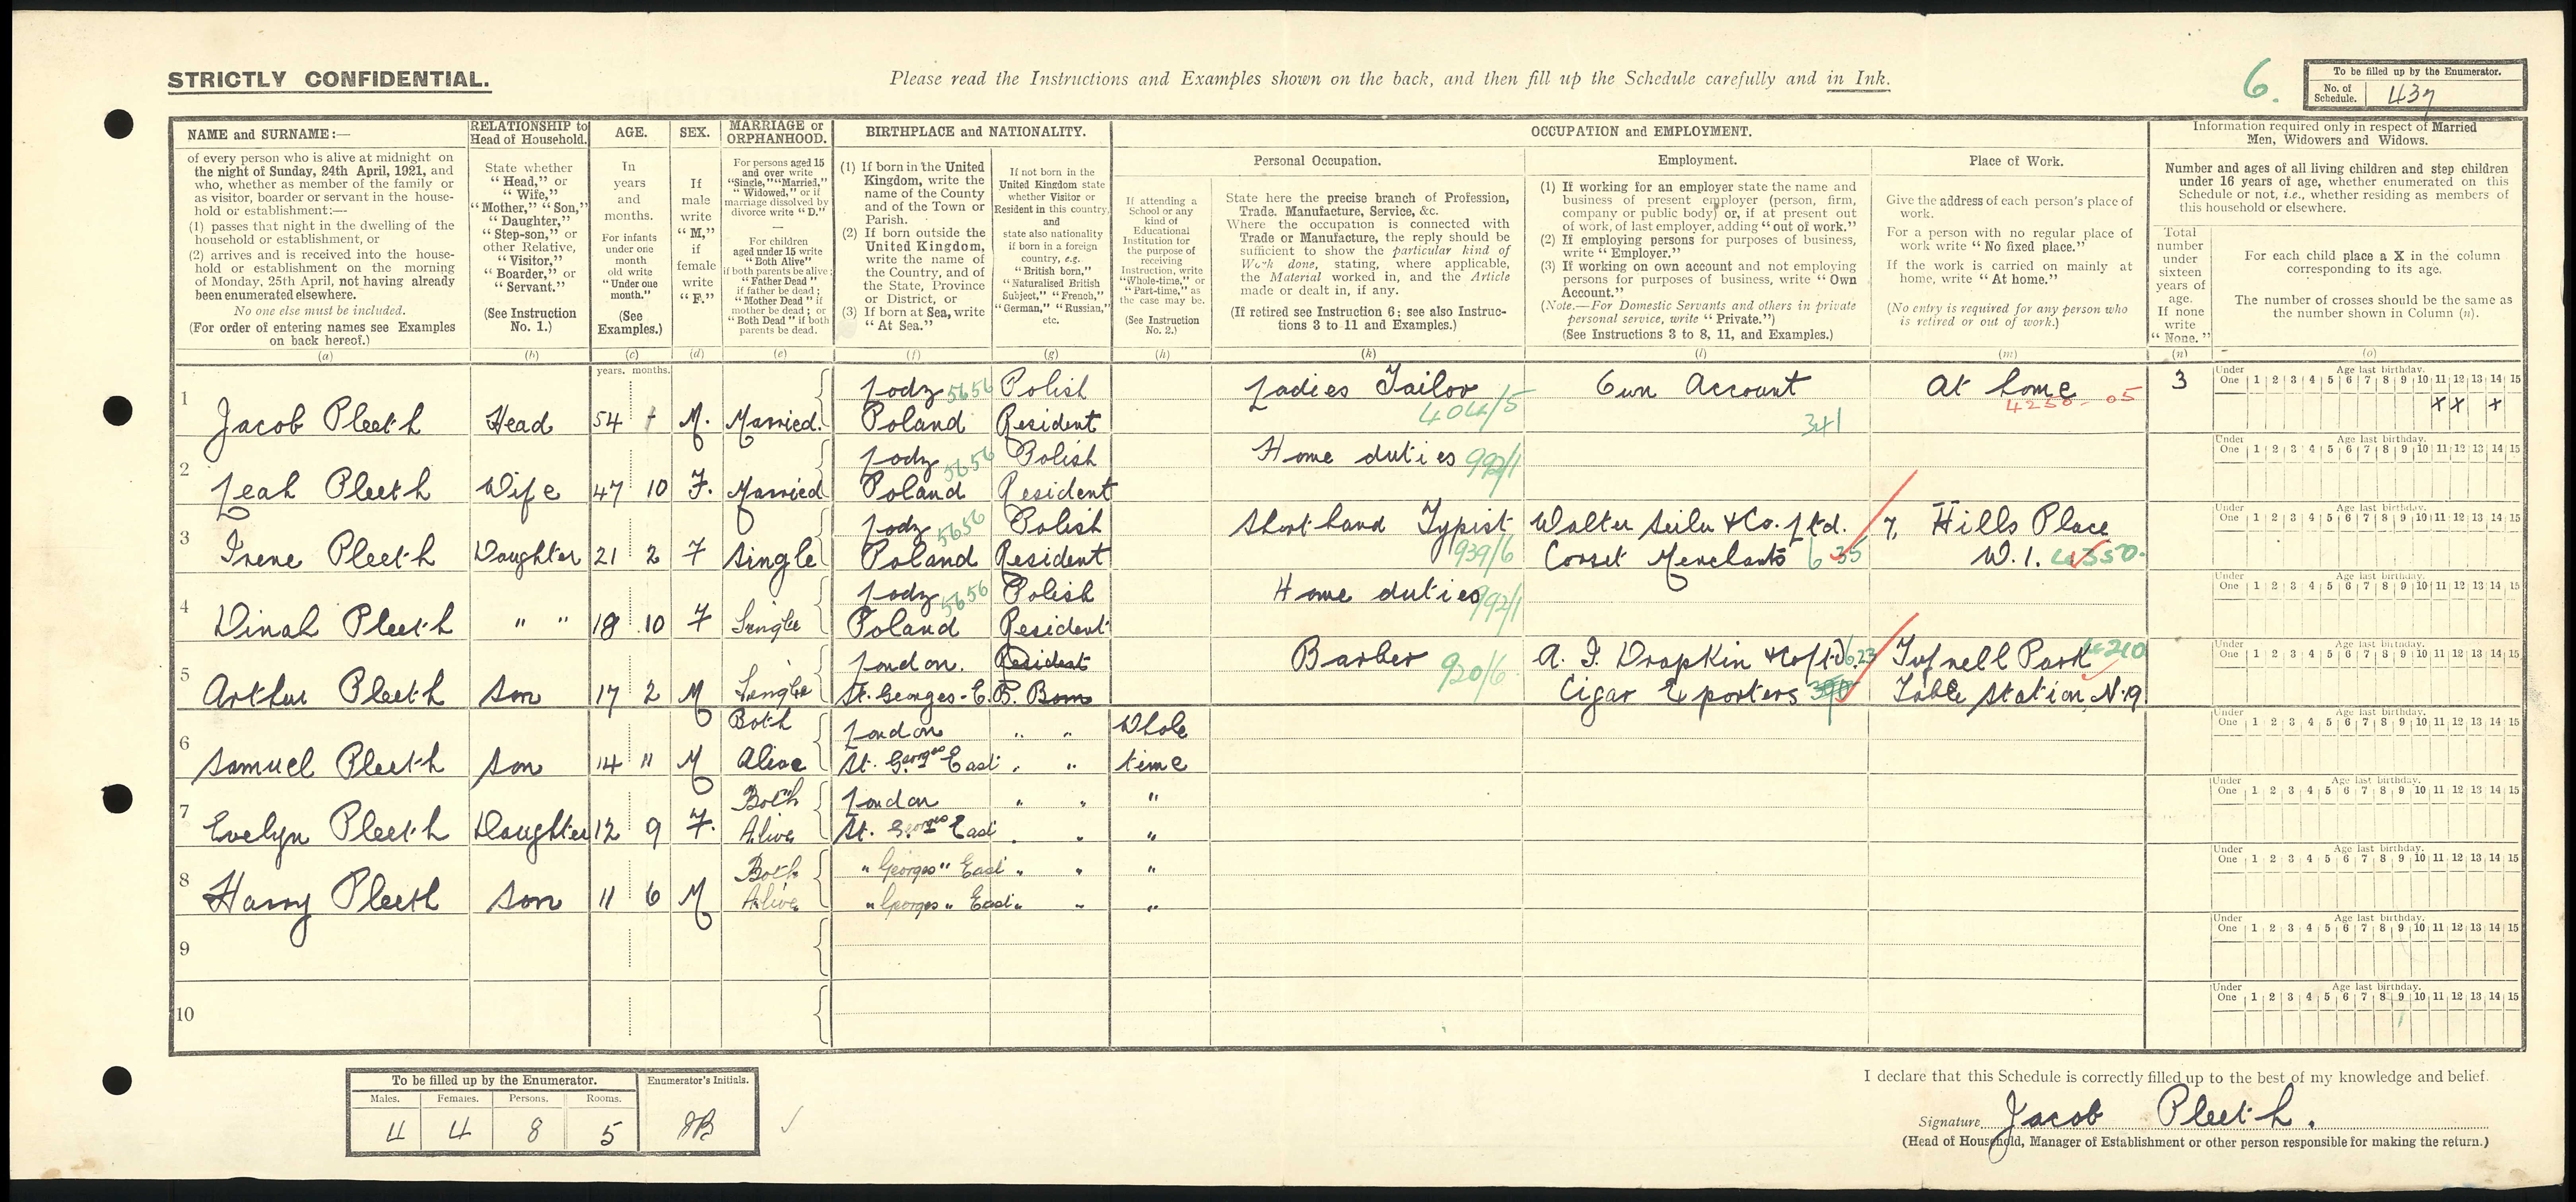 STRICTLY CONFIDENTIAL.
Please read the Instructions and Examples shown on the back, and then fill up the Schedule carefully and in Ink.
6.
To be filled up by the Enumerator.
No. of Schedule. 437
NAME and SURNAME:—
of every person who is alive at midnight on
the night of Sunday, 24th April, 1921, and
who, whether as member of the family or
as visitor, boarder or servant in the house-
hold or establishment:—
(1) passes that night in the dwelling of the
household or establishment, or
(2) arrives and is received into the house-
hold or establishment on the morning
of Monday, 25th April, not having already
been enumerated elsewhere.
No one else must be included.
(For order of entering names see Examples
on back hereof.)
(a)
RELATIONSHIP to
Head of Household.
State whether
"Head," or
"Wife,"
"Mother," "Son,"
"Daughter,"
"Step-son," or
other Relative,
"Visitor,"
"Boarder," or
"Servant."
(See Instruction
No. 1.)
(b)
AGE.
In
years
and
months.
For infants
under one
month
old write
"Under one
month."
(See
Examples.)
(c)
SEX.
If
male
write
"M,"
if
female
write
"F."
(d)
MARRIAGE or
ORPHANHOOD.
For persons aged 15
and over write
"Single," "Married,"
"Widowed," or if
marriage dissolved by
divorce write "D."
For children
aged under 15 write
"Both Alive"
if both parents be alive;
"Father Dead"
if father be dead;
"Mother Dead" if
mother be dead; or
"Both Dead" if both
parents be dead.
(e)
BIRTHPLACE and NATIONALITY.
(1) If born in the United
Kingdom, write the
name of the County
and of the Town or
Parish.
(2) If born outside the
United Kingdom,
write the name of
the Country, and of
the State, Province
or District, or
(3) If born at Sea, write
"At Sea."
(f)
If not born in the
United Kingdom state
whether Visitor or
Resident in this country,
and
state also nationality
if born in a foreign
country, e.g.
"British born,"
"Naturalised British
Subject," "French,"
"German," "Russian,"
etc.
(g)
If attending a
School or any
kind of
Educational
Institution for
the purpose of
receiving
Instruction, write
"Whole-time," or
"Part-time," as
the case may be.
(See Instruction
No. 2.)
(h)
OCCUPATION and EMPLOYMENT.
Personal Occupation.
State here the precise branch of Profession,
Trade, Manufacture, Service, &c.
Where the occupation is connected with
Trade or Manufacture, the reply should be
sufficient to show the particular kind of
Work done, stating, where applicable,
the Material worked in, and the Article
made or dealt in, if any.
(If retired see Instruction 6; see also Instruc-
tions 3 to 11 and Examples.)
(k)
Employment.
(1) If working for an employer state the name and
business of present employer (person, firm,
company or public body) or, if at present out
of work, of last employer, adding "out of work."
(2) If employing persons for purposes of business,
write "Employer."
(3) If working on own account and not employing
persons for purposes of business, write "Own
Account."
(Note.—For Domestic Servants and others in private
personal service, write "Private.")
(See Instructions 3 to 8, 11, and Examples.)
(l)
Place of Work.
Give the address of each person's place of
work.
For a person with no regular place of
work write "No fixed place."
If the work is carried on mainly at
home, write "At home."
(No entry is required for any person who
is retired or out of work.)
(m)
Information required only in respect of Married
Men, Widowers and Widows.
Number and ages of all living children and step children
under 16 years of age, whether enumerated on this
Schedule or not, i.e., whether residing as members of
this household or elsewhere.
Total
number
under
sixteen
years of
age.
If none
write
"None."
(n)
For each child place a X in the column
corresponding to its age.
The number of crosses should be the same as
the number shown in Column (n).
(o)
years. months.
1 Jacob Pleeth Head 54 M. Married. Lodz Poland 5656 Polish Resident Ladies Tailor 404/5 Own Account 341 At home 4250-05 3
Under One Age last birthday. 1 2 3 4 5 6 7 8 9 10 11 12 13 14 15
X X X
2 Leah Pleeth Wife 47 10 F. Married Lodz Poland 5656 Polish Resident Home duties 992/1
Under One Age last birthday. 1 2 3 4 5 6 7 8 9 10 11 12 13 14 15
3 Irene Pleeth Daughter 21 2 F Single Lodz Poland 5656 Polish Resident Short hand Typist 939/6 Walter & Co. Ltd. Corset Merchants 7, Hills Place W.1.
Under One Age last birthday. 1 2 3 4 5 6 7 8 9 10 11 12 13 14 15
4 Dinah Pleeth " " 18 10 F Single Lodz Poland 5656 Polish Resident Home duties 992/1
Under One Age last birthday. 1 2 3 4 5 6 7 8 9 10 11 12 13 14 15
5 Arthur Pleeth Son 17 2 M Single London. St. Georges-E. Resident B. Born Barber 920/6 A. I. Drapkin & Co Ltd Cigar Exporters Tufnell Park Tube Station N.19
Under One Age last birthday. 1 2 3 4 5 6 7 8 9 10 11 12 13 14 15
6 Samuel Pleeth Son 14 11 M Both Alive London St. Georges East " " " " Whole time
Under One Age last birthday. 1 2 3 4 5 6 7 8 9 10 11 12 13 14 15
7 Evelyn Pleeth Daughter 12 9 F. Both Alive London St. Georges East " " " " " "
Under One Age last birthday. 1 2 3 4 5 6 7 8 9 10 11 12 13 14 15
8 Harry Pleeth Son 11 6 M Both Alive " Georges " East " Georges " East " " " " " "
Under One Age last birthday. 1 2 3 4 5 6 7 8 9 10 11 12 13 14 15
9
Under One Age last birthday. 1 2 3 4 5 6 7 8 9 10 11 12 13 14 15
10
Under One Age last birthday. 1 2 3 4 5 6 7 8 9 10 11 12 13 14 15
To be filled up by the Enumerator. Enumerator's Initials.
Males. Females. Persons. Rooms.
4 4 8 5 JB
I declare that this Schedule is correctly filled up to the best of my knowledge and belief.
Signature Jacob Pleeth.
(Head of Household, Manager of Establishment or other person responsible for making the return.)